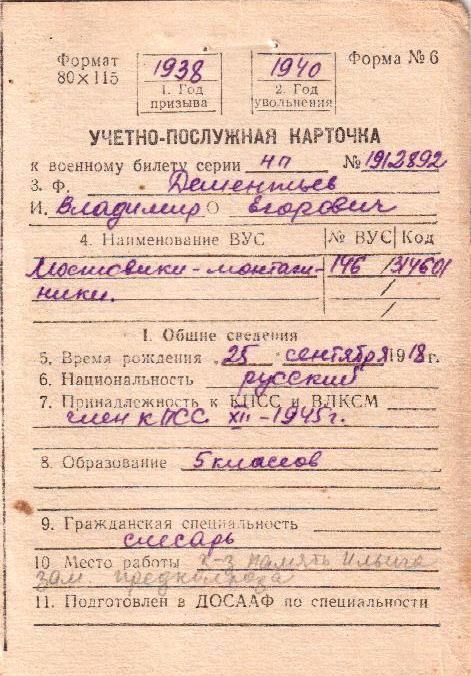 Формат
80×115
1938
1. Год
призыва
1940
2. Год
увольнения
Форма № 6
УЧЕТНО-ПОСЛУЖНАЯ КАРТОЧКА
к военному билету серии нп № 1912892
3. Ф. Дементьев
И. Владимир О Егорович
4. Наименование ВУС № ВУС Код
Мостовики-монтаж- 146 /314601
ники. /
/
I. Общие сведения
5. Время рождения 25 сентября 1918 г.
6. Национальность русский
7. Принадлежность к КПСС и ВЛКСМ
член КПСС XII-1945 г.
8. Образование 5 классов
9. Гражданская специальность
слесарь
10 Место работы к-з память Ильича
зам. предколхоза
11. Подготовлен в ДОСААФ по специальности